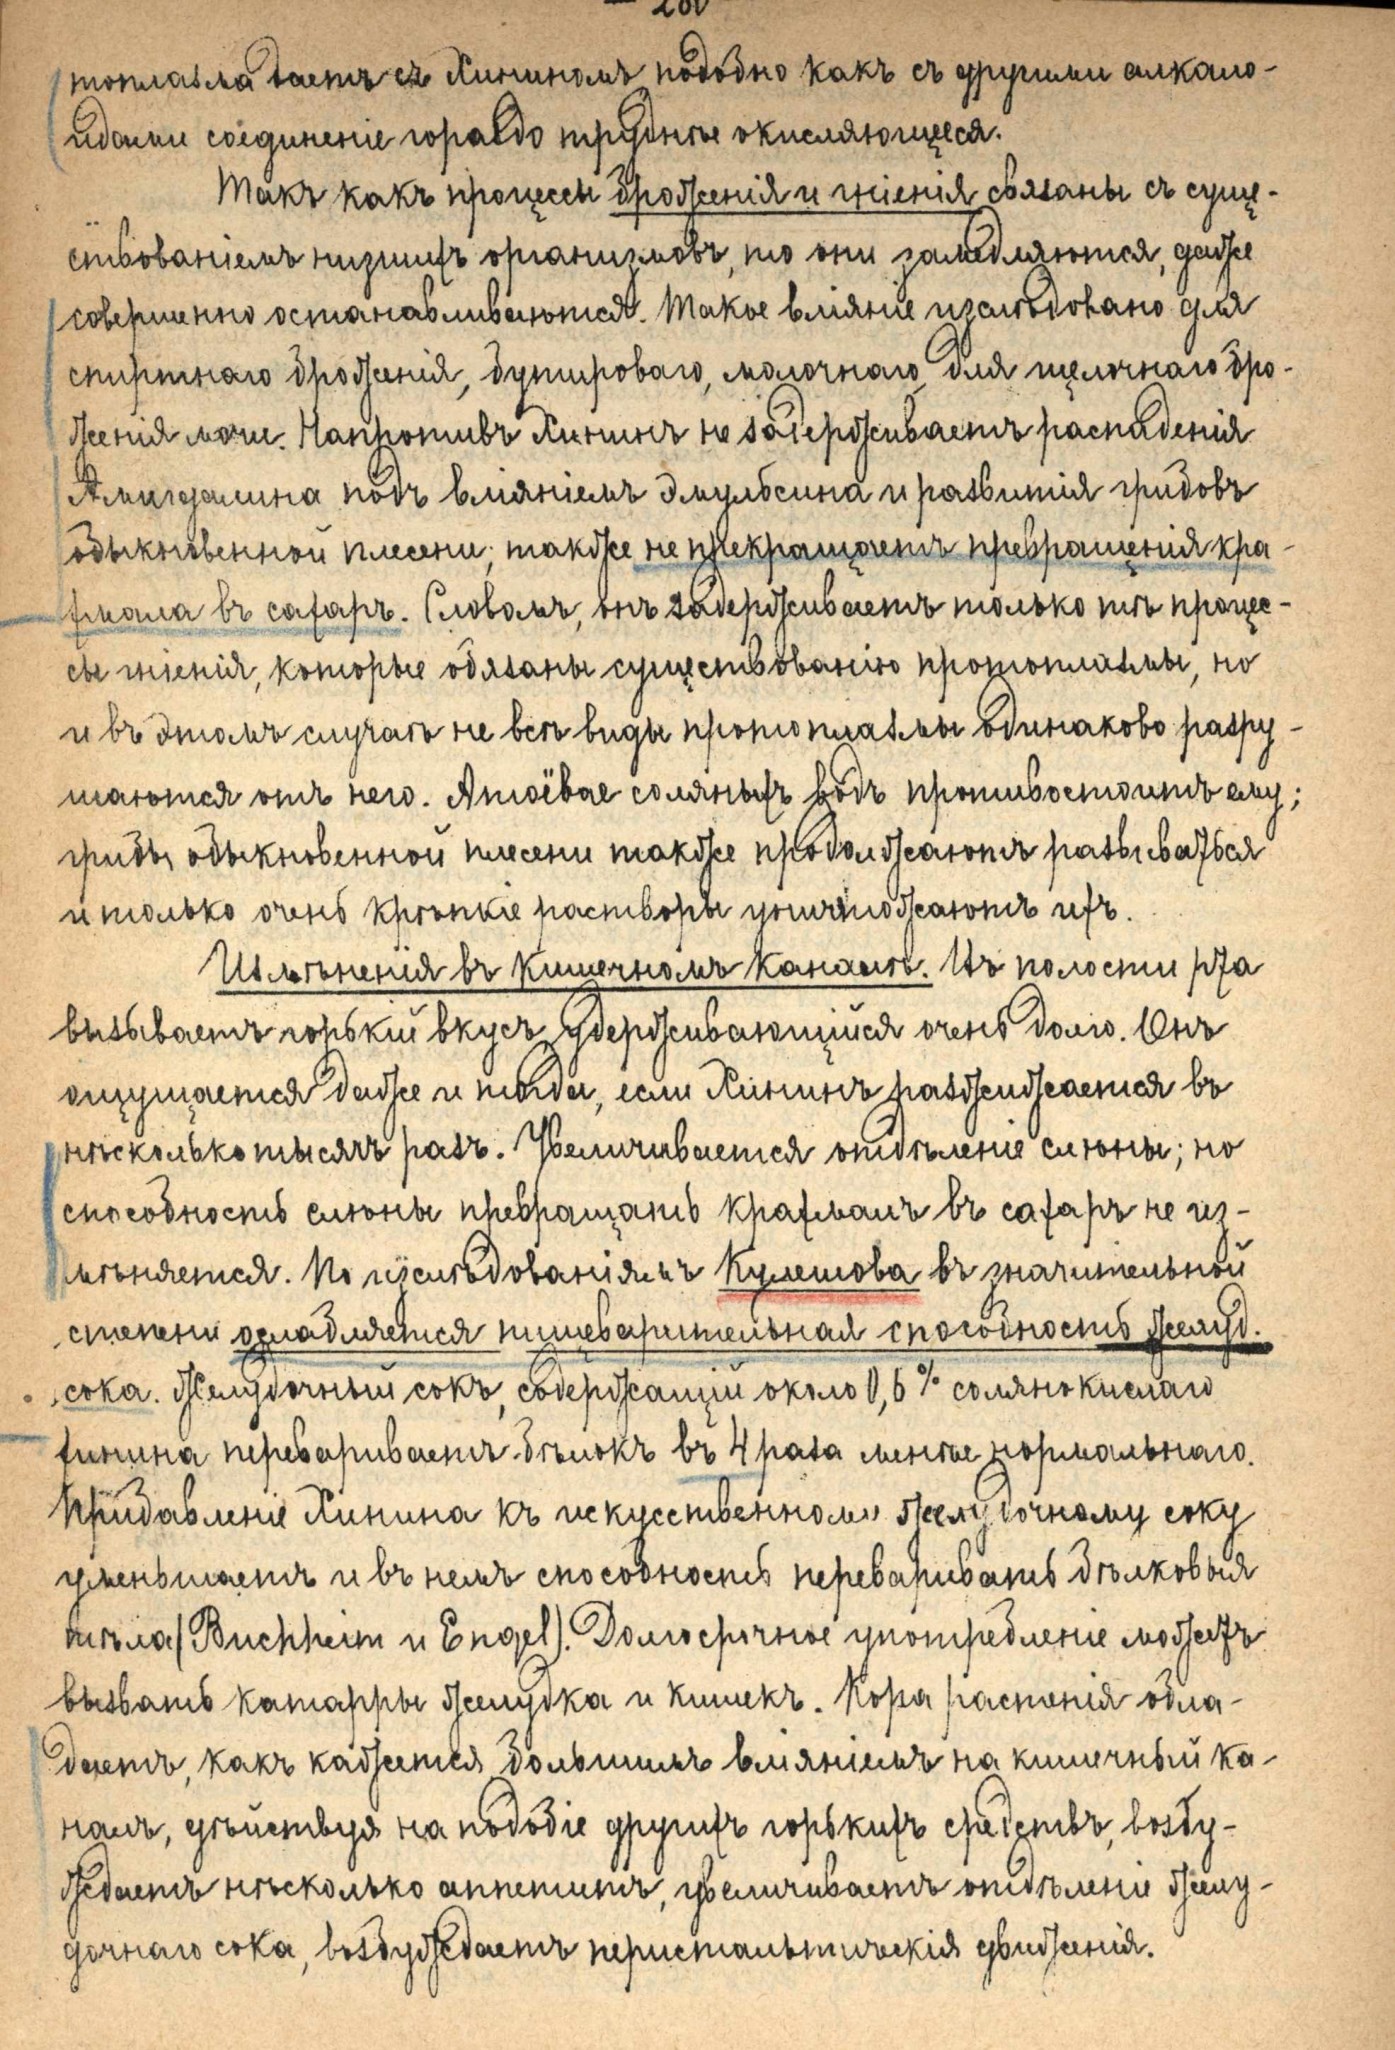 — 260 —
топлазма даетъ съ Хининомъ подобно какъ съ другими алкало-
идами соединеніе гораздо труднѣе окисляющееся.
Такъ какъ процессы броженія и гніенія связаны съ суще-
ствованіемъ низшихъ организмовъ, то они замедляются, даже
совершенно останавливаются. Такое вліяніе изслѣдовано для
спиртнаго броженія, бутироваго, молочнаго, для щелочнаго бро-
женія мочи. Напротивъ Хининъ не задерживаетъ распаденія
Амигдалина подъ вліяніемъ Эмульсина и развитія грибовъ
обыкновенной плесени; также не прекращаетъ превращенія кра-
хмала въ сахаръ. Словомъ, онъ задерживаетъ только тѣ процес-
сы гніенія, которые обязаны существованію протоплазмы, но
и въ этомъ случаѣ не всѣ виды протоплазмы одинаково разру-
шаются отъ него. Amoëbae соляныхъ водъ противостоитъ ему;
грибы обыкновенной плесени также продолжаютъ развиваться
и только очень крѣпкіе растворы уничтожаютъ ихъ.
Измѣненія въ кишечномъ каналѣ. Въ полости рта
вызываетъ горькій вкусъ удерживающійся очень долго. Онъ
ощущается даже и тогда, если Хининъ разжижается въ
нѣсколько тысячъ разъ. Увеличивается отдѣленіе слюны; но
способность слюны превращать крахмалъ въ сахаръ не из-
мѣняется. По изслѣдованіямъ Кулешова въ значительной
степени ослабляется пищеварительная способность желуд.
сока. Желудочный сокъ, содержащій около 0,6 % солянокислаго
хинина перевариваетъ бѣлокъ въ 4 раза менѣе нормальнаго.
Прибавленіе Хинина къ искусственному желудочному соку
уменьшаетъ и въ немъ способность переваривать бѣлковыя
тѣла (Buchheim и Engel). Долгосрочное употребленіе можетъ
вызвать катарры желудка и кишекъ. Кора растенія обла-
даетъ, какъ кажется большимъ вліяніемъ на кишечный ка-
налъ, дѣйствуя на подобіе другихъ горькихъ средствъ, возбу-
ждаетъ нѣсколько аппетитъ, увеличиваетъ отдѣленіе желу-
дочнаго сока, возбуждаетъ перистальтическія движенія.